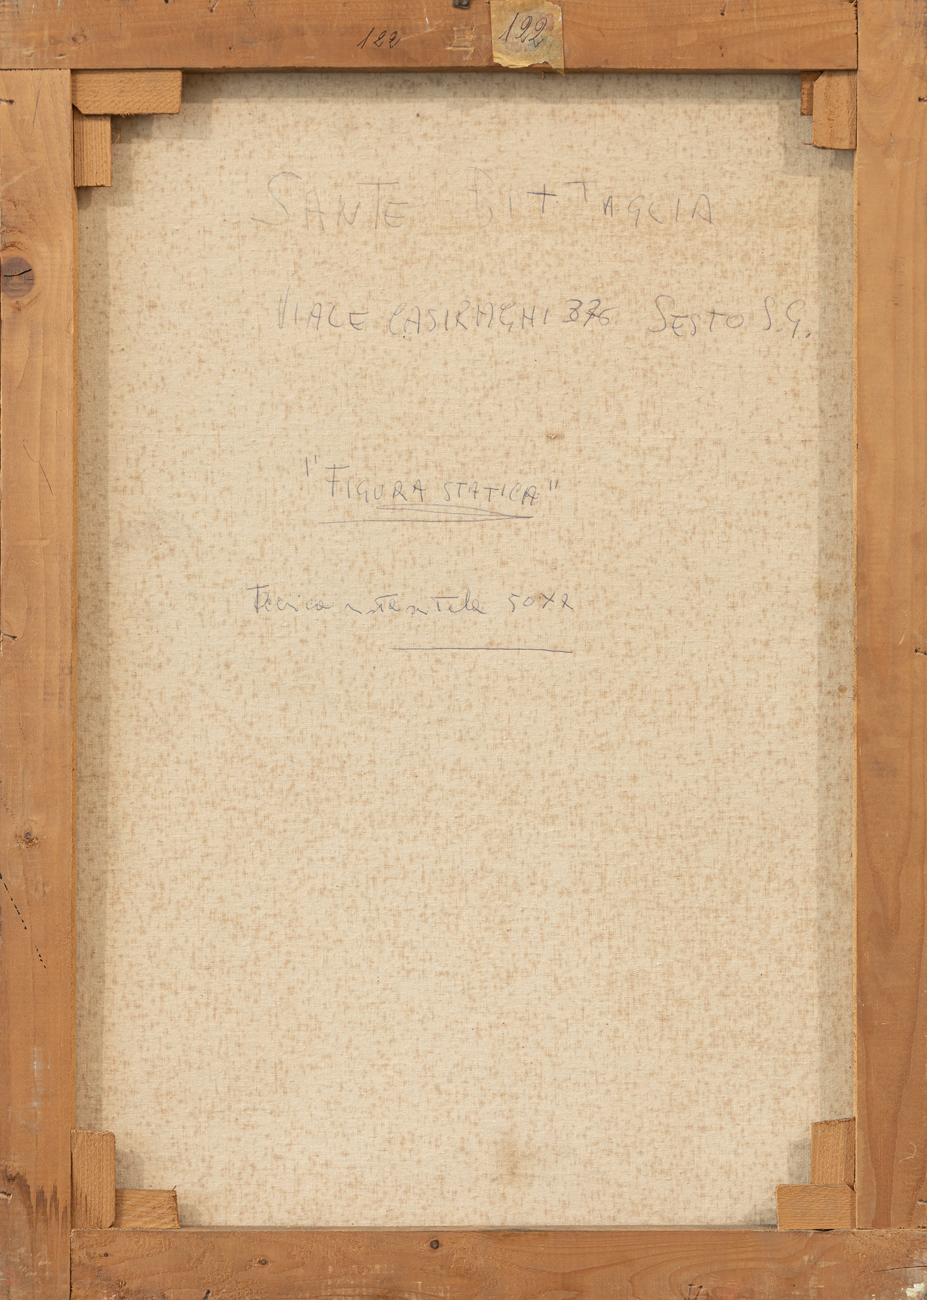 122 122
SANTE BITTAGLIA
VIALE CASIRAGHI 376 SESTO S.G.
"FIGURA STATICA"
Tecnica mista su Tela 50X